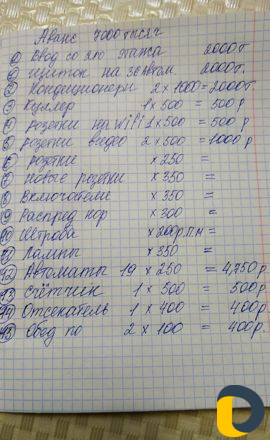 Аванс 7000 тысяч
① Ввод со 2го этажа 2000т
② щиток на зввом. 2000т.
③ кондиционеры 2 x 1000 = 2000т.
④ Куллер 1 x 500 = 500 р
④ розетки wifi 1 x 500 = 500 р
⑤ розетки видео 2 x 500 = 1000 р
⑥ розетки x 250 =
⑦ новые розетки x 350 =
⑧ Включатели x 350 =
⑨ Распред кор x 300 =
⑩ Штроба x 200р П.М =
⑪ Лампы x 350 =
⑫ Автоматы 19 x 250 = 4,750 р
⑬ Счётчик 1 x 500 = 500 р
⑭ Отсекатель 1 x 400 = 400 р
⑮ Обед по 2 x 100 = 400 р.